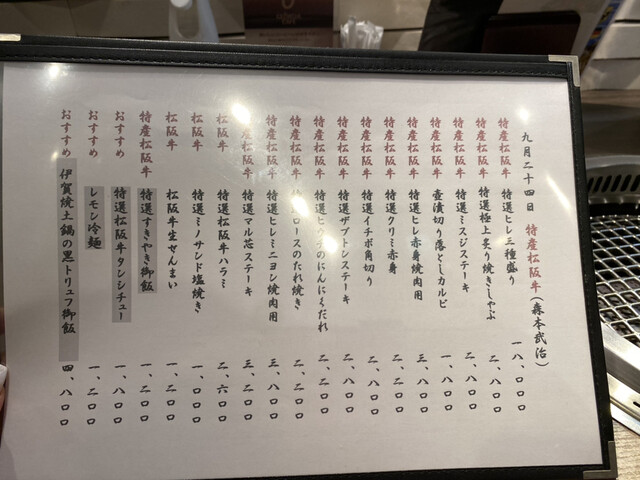 九月二十四日 特産松阪牛(森本武治)
特産松阪牛 特選ヒレ三種盛り 一八、〇〇〇
特産松阪牛 特選極上炙り焼きしゃぶ 二、八〇〇
特産松阪牛 特選ミスジステーキ 二、八〇〇
特産松阪牛 壺漬切り落としカルビ 一、八〇〇
特産松阪牛 特選ヒレ赤身焼肉用 三、八〇〇
特産松阪牛 特選クリミ赤身 二、二〇〇
特産松阪牛 特選イチボ角切り 二、八〇〇
特産松阪牛 特選ザブトンステーキ 二、八〇〇
特産松阪牛 のにんにくだれ 二、二〇〇
特産松阪牛 ロースのたれ焼き 二、二〇〇
特産松阪牛 特選ヒレミニヨン焼肉用 三、八〇〇
産松阪牛 特選マル芯ステーキ 二、二〇〇
松阪牛 特選松阪牛ハラミ 二、六〇〇
松阪牛 特選ミノサンド塩焼き 一、〇〇〇
松阪牛 松阪牛生せんまい 一、二〇〇
特産松阪牛 特選すきやき御飯 一、二〇〇
おすすめ 特選松阪牛タンシチュー 一、八〇〇
おすすめ レモン冷麺 一、二〇〇
おすすめ 伊賀焼土鍋の黒トリュフ御飯 四、八〇〇